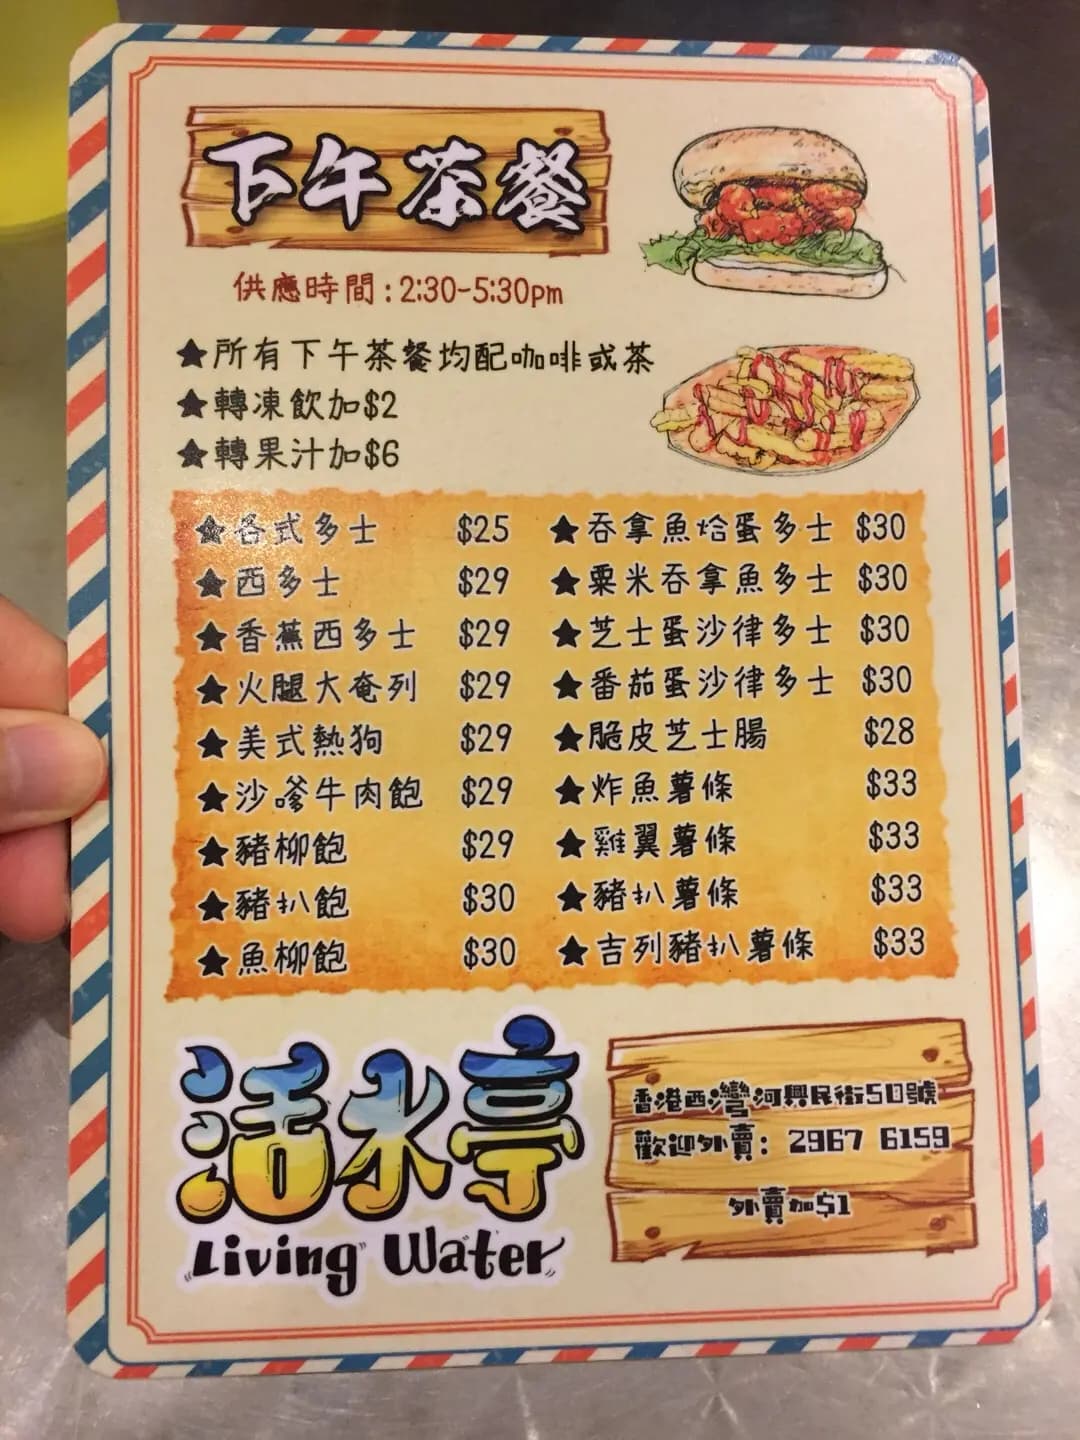 下午茶餐
供應時間:2:30-5:30pm
★所有下午茶餐均配咖啡或茶
★轉凍飲加$2
★轉果汁加$6
★各式多士 $25
★西多士 $29
★香蕉西多士 $29
★火腿大奄列 $29
★美式熱狗 $29
★沙嗲牛肉飽 $29
★豬柳飽 $29
★豬扒飽 $30
★魚柳飽 $30
★吞拿魚烚蛋多士 $30
★粟米吞拿魚多士 $30
★芝士蛋沙律多士 $30
★番茄蛋沙律多士 $30
★脆皮芝士腸 $28
★炸魚薯條 $33
★雞翼薯條 $33
★豬扒薯條 $33
★吉列豬扒薯條 $33
活水亭
Living Water
香港西灣河興民街50號
歡迎外賣: 2967 6159
外賣加$1